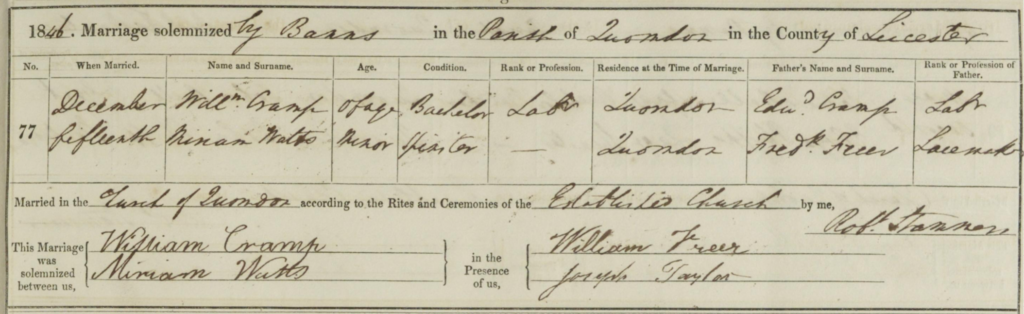 1846. Marriage solemnized by Banns in the Parish of Quorndon in the County of Leicester
No. When Married. Name and Surname. Age. Condition. Rank or Profession. Residence at the Time of Marriage. Father's Name and Surname. Rank or Profession of Father.
December Willm Cramp of age Bachelor Labr Quorndon Edwd Cramp Labr
77 fifteenth Miriam Watts Minor Spinster — Quorndon Fredk Freer Lacemaker
Married in the Church of Quorndon according to the Rites and Ceremonies of the Established Church by me,
Robt Stammers
This Marriage was solemnized between us, William Cramp in the Presence of us, William Freer
Miriam Watts Joseph Taylor